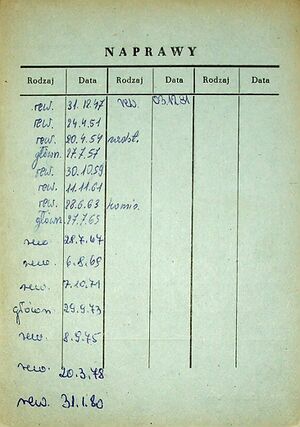 NAPRAWY
Rodzaj Data Rodzaj Data Rodzaj Data
rew. 31.12.47 rew. 03.12.81
rew. 24.4.51
rew. 20.4.54
główn. 27.7.57
rew. 30.10.59
rew. 11.11.61
rew. 28.6.63 komis.
główn. 27.7.65
rew. 28.7.67
rew. 6.8.69
rew. 7.10.71
główn. 29.9.73
rew. 8.9.75
rew. 20.3.78
rew. 31.1.80